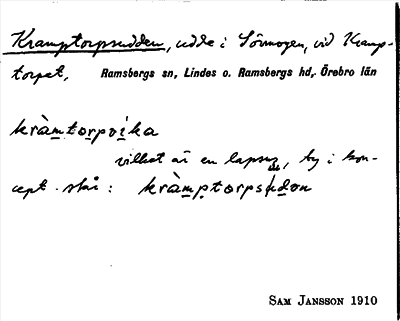 Kramptorpsudden, udde i Sörmogen, vid Kramp-
torpet, Ramsbergs sn, Lindes o. Ramsbergs hd, Örebro län
kràmtorpvika
vilket är en lapsus, ty i kon-
cept står: kràmptorpsudon
SAM JANSSON 1910